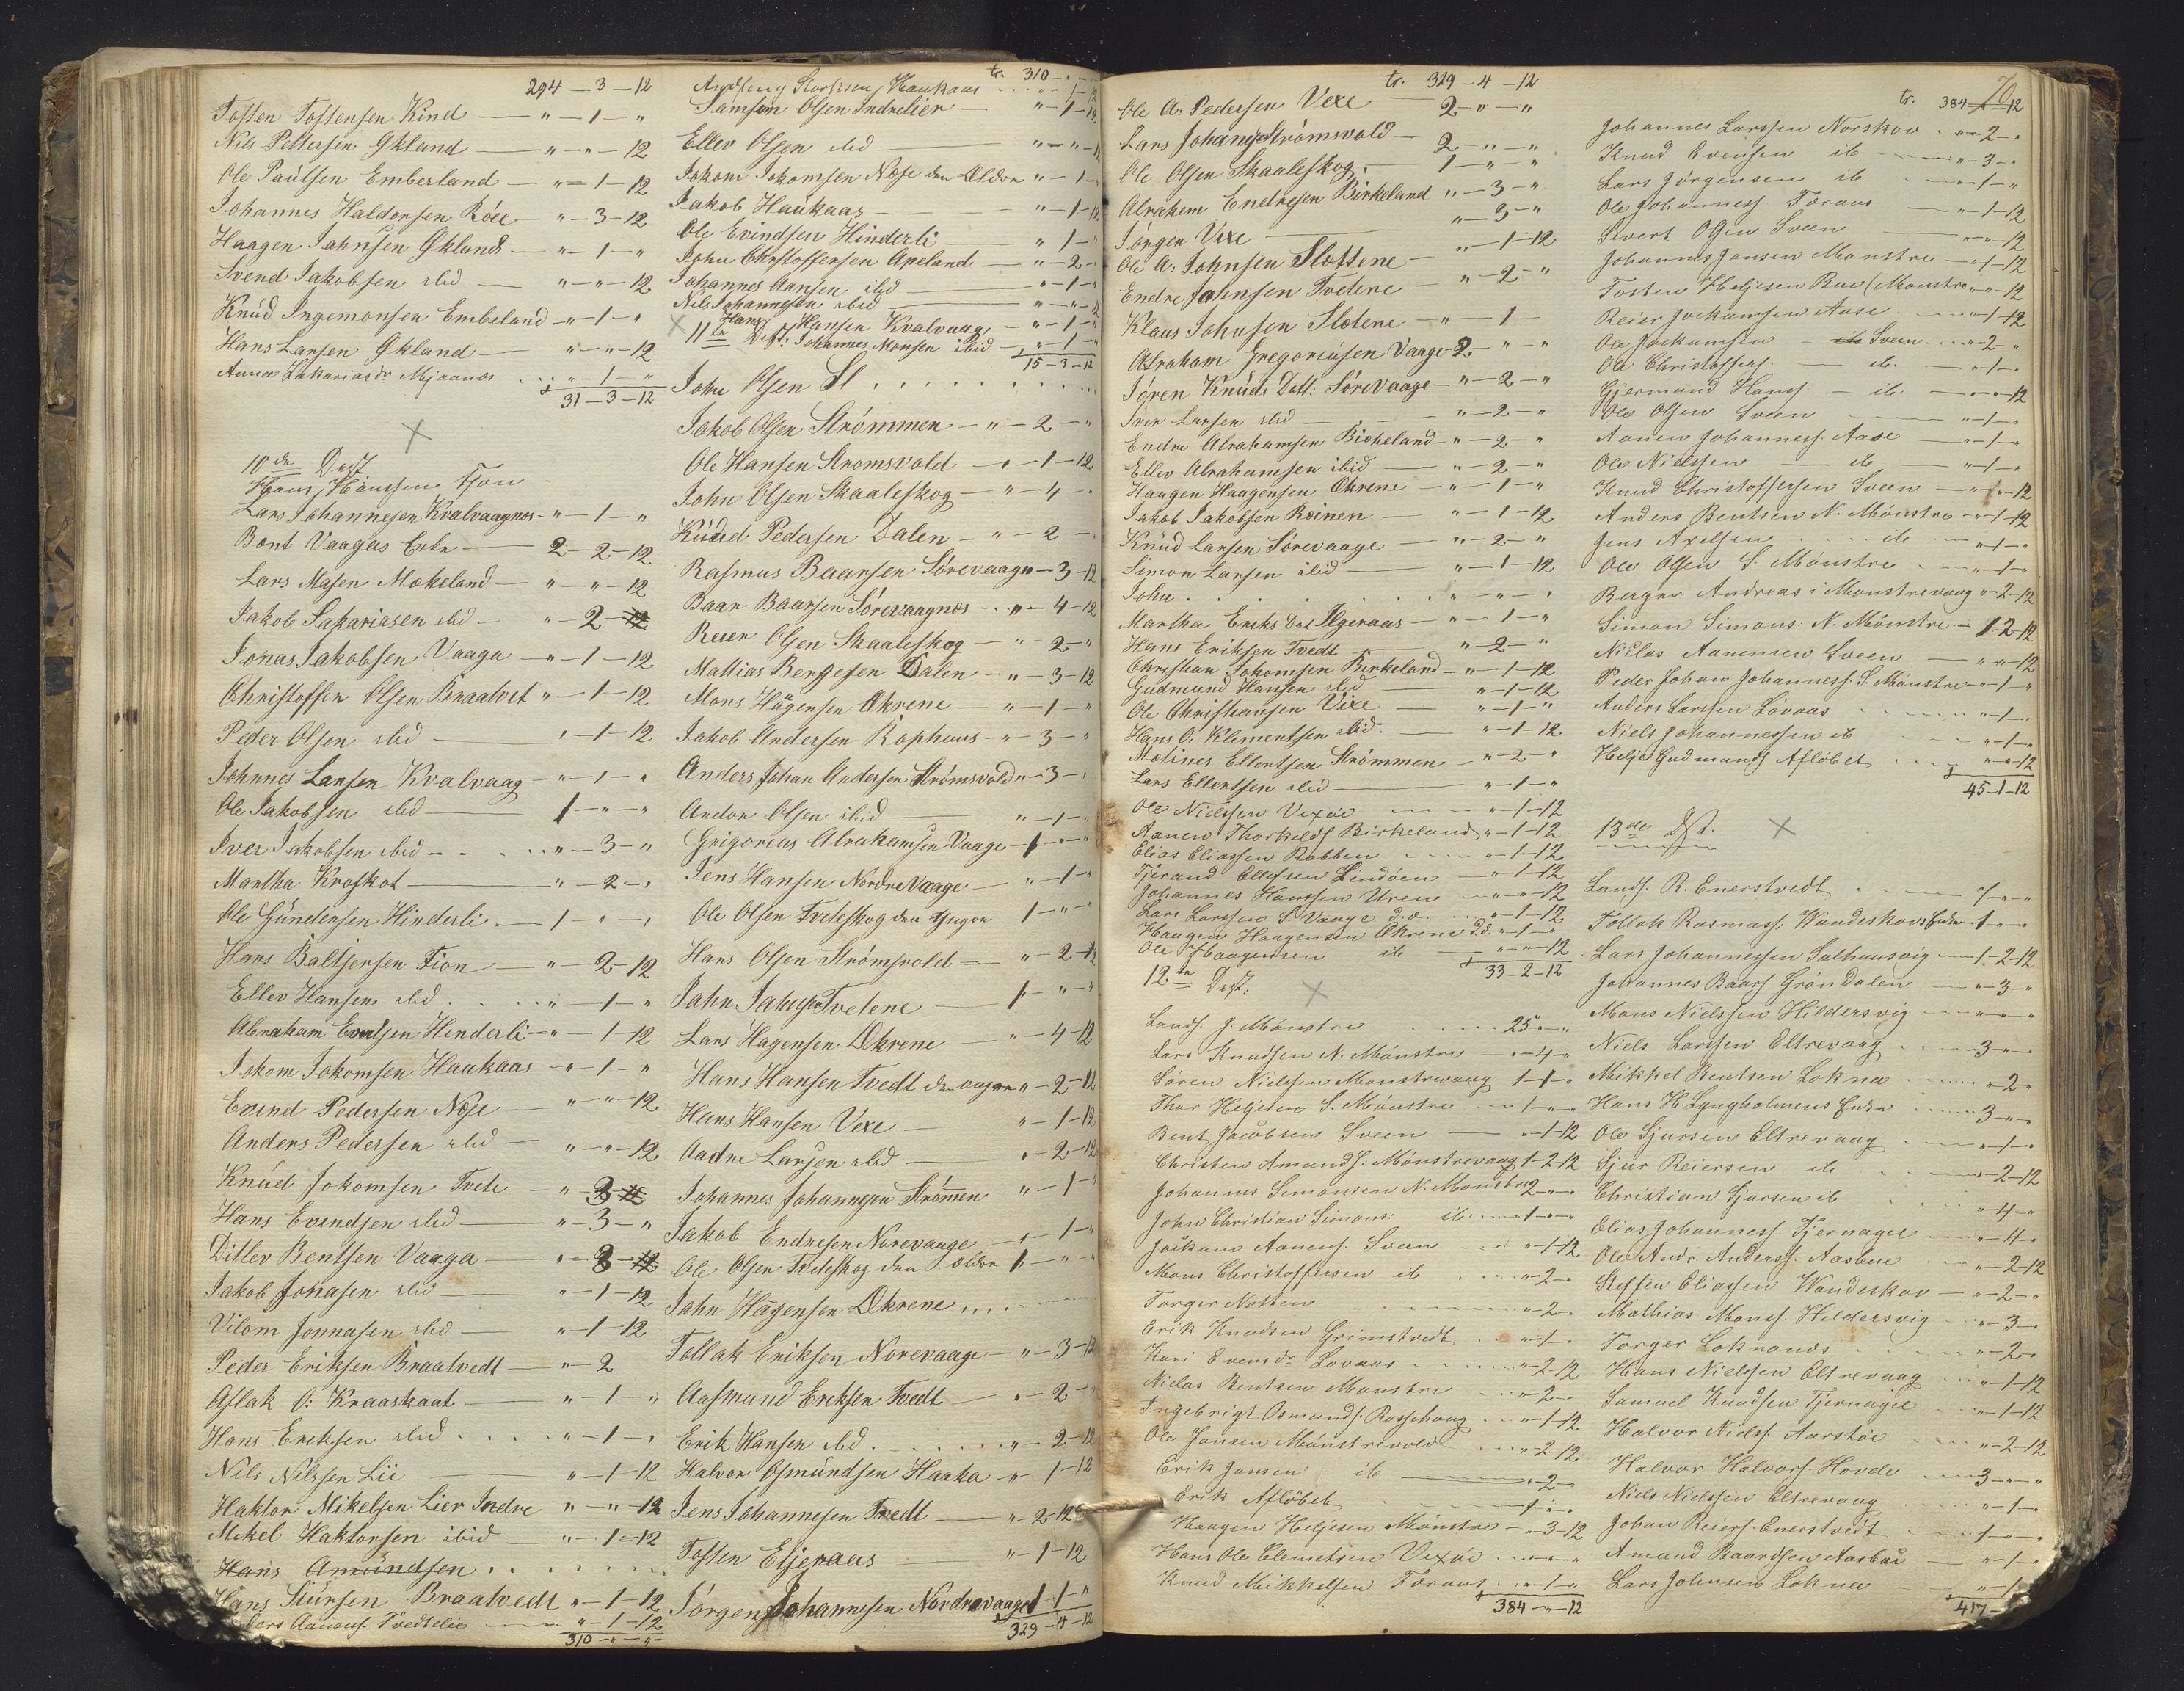 294 – 3 – 12
Tosten Tostensen Kind — " – 1 – "
Nils Pettersen Økland — " – " – 12
Ole Paulsen Emberland — " – 1 – 12
Johannes Haldorsen Röee — " – 3 – 12
Haagen Jahnsen Økland — " – 1 – "
Svend Jakobsen ibid — " – " – 12
Knud Ingemonsen Embeland — " – 1 – "
Hans Larsen Økland — " – " – 12
Anna Zakariasdr Mjaanæs " – 1 – "
31 – 3 – 12
10de Dist
Hans Hanssen Fjon
Lars Johannesen Kvalvaagnæs – " – 1 – "
Bent Vaagas Enke — 2 – 2 – 12
Lars Masen Mækeland — " – " – 12
Jakob Sakariasen ibid — " – 2 – 12
Jonas Jakobsen Vaaga — " – 1 – 12
Christoffer Olsen Braatvet " – 1 – 12
Peder Olsen ibid — " – 1 – 12
Johnnes Larsen Kvalvaag — " – 1 – "
Ole Jakobsen ibid — 1 – " – "
Iver Jakobsen ibid " – 3 – "
Martha Kroskot — " – 2 – "
Ole Gundersen Hinderli — 1 – " – "
Hans Baltsersen Fion — " – 2 – 12
Ellev Hansen ibid . . . " – 1 – "
Abraham Evindsen Henderli – " – 1 – 12
Jokom Jokomsen Haukaas – " – 1 – "
Evend Pedersen Næse — " – " – 12
Anders Pedersen ibid — " – " – 12
Knud Jokomsen Tveite — " 3 – 12
Hans Evendsen ibid — " – 3 – "
Ditlev Bentsen Vaaga — " – 3 – 12
Jakob Jonasen ibid — " – 1 – 12
Vilom Jonnasen ibid — " – 1 – 12
Peder Eriksen Braatvedt — " – 2
Aslak O: Kraaskaat — " – 1 – "
Hans Ereksen ibid . . . . " – 1 – "
Nils Nilssen Lie " – 1 – 12
Haktor Mikelsen Lier Indre " – " – 12
Mekel Haktorsen ibid — " – 1 – 12
Hans Amundsen . . . .
Hans Stursen Braatvedt " – 1 – 12
Aanens. Tvedtelie — " – 1 – 12
310 – " – "
tr. 310 – " – "
Storksen Haukaas " – 1 – 12
Samson Olsen Indrelier — " – 1 – 12
Ellev Olsen ibid — " – "
Jokom Jokomsen Næse den Ældre " – 1 –
Jakob Haukaas — " – 1 – 12
Ole Evindsen Hinderli — " 1 – "
John Christoffersen Apeland — " – 2 –
Johannes Hansen ibid " – 1 –
Nils Johannesen ibid " – "
Hans Hansen Kvalvaag – " – 1 – "
11te Dist: Johannes Monsen ibid – " – 1 – "
15 – 3 – 12
John Olsen Sl . . . . . . .
Jakob Olsen Strömmen – " – 2 – "
Ole Hansen Stromsvold — " – 1 – 12
John Olsen Skaaleskog — " – 4 –
Knud Pedersen Dalen – " – 2 –
Rasmus Baarsen Sörevaagn – 3 – 12
Baar Baarsen Sörevaagnæs . " – 4 – 12
Reier Olsen Skaaleskog — " – 2 – "
Mathias Bergesen Dalen – " – 3 – 12
Mons Hågensen Økrene — " – 1 – "
Jakob Andersen Røphaus – " – 3 – "
Anders Johan Andersen Strömsvold " – 3 –
Andor Olsen ibid — " – 1 –
Grigorius Abrahamsen Vaage – 1 – " – "
Jens Hansen Nordre Vaage — " – 1 – "
Ole Olsen Tveteskog den Yngre 1 – " – "
Hans Olsen Strömsvold — " – 2 – 12
Jahn Jahnsen Tvetene — 1 – " – "
Lars Hagensen Økrene — " – 4 – 12
Hans Hansen Tvedt den yngre " – 2 – 12
Hans Hansen Vexe — " – 1 – 12
Aadne Larsen ibid — " – 2 – 12
Johannes Johannesen Strömen " – 1 – "
Jakob Endresen Norevaage — " – 1 – "
Ole Olsen Tveteskog den ældre 1 – " – "
Jahn Hågensen Økrene . . .
Tollak Eriksen Norevaage — " – 3 – 12
Aasmund Ereksen Tvedt — " – 2 –
Erik Hansen ibid . . . . . " – 2 – 12
Halvor Osmundsen Haaka — " 1 – 12
Jens Johannesen Tvedt — " – 2 – 12
Tosten Eljeraas " – 1 – 12
Jörgen Johannesen Nordrevaage 1 – 1 – "
329 – 4 – 12
tr. 329 – 4 – 12
Ole A. Pedersen Vexe 2 – " – "
Lars Johans Strömsvold — 2 – " – "
Ole Olsen Skaaleskog . — 1 – " – "
Abrahem Endresen Birkeland " – 3 – "
Jörgen Vexe — " – 3 – "
Ole A: Johnsen Slottene — " – 1 – 12
Endre Johnsen Tvetene — " – 2 – "
Klaus Johnsen Slotene — " – 1 –
Abraham Gregoriusen Vaage – 2 – " – "
Sören Knuds Datt: Sörevaage – " – 2 – "
Iver Larsen ibid — " – 2 – "
Endre Abrahamsen Birkeland – " – 2 – "
Ellev Abrahamsen ibid — " – 2 – "
Haagen Haagensen Økrene — " – 1 – "
Jakob Jakobsen Roinen — " – 1 – 12
Knud Larsen Sörevaage — " – 2 – "
Simon Larsen ibid — " – 1 – 12
John . . . . . . " – " – "
Martha Eriks Dat Ilgeraas — " – 1 – "
Hans Eriksen Tvedt — " – 2 – "
Christian Jokomsen Berkeland – " – 1 – 12
Gudmund Hansen ibid — " – 1 – 12
Ole Christiansen Vixe — " – 1 – "
Hans O: Klementsen ibid. — " – 1 – 12
Matines Ellertsen Strömmen — " – 2 – "
Lars Ellertsen ibid — " – 1 – "
Ole Nielssen Vexöe — " – 1 – 12
Aanen Thorkelds Birkeland " – 1 – 12
Elias Eliassen Rabben " – 1 – 12
Tjerand Ellefsen Lindöen — " – 1 – 12
Johannes Hanssen Uren — " – " – 12
Lars Larssen S. Vaage d.æ. " – 1 – 12
Haagen Haagensen Økrene " – 1 – "
Ole Haagensen ib — " – " – 12
33 – 2 – 12
12te Dist:
Lands. J. Mönstre . . . . 25 – " – "
Lars Knudsen N. Mönstre — " – 4 – "
Sören Nielsen Monstrevaag 1 – 1 – "
Thor Heljesen S. Mönstre — " 1 – "
Bent Jacobsen Sveen — " – 1 – 12
Christen Amunds: Mönstrevaag 1 – 2 – 12
Johannes Simonsen N. Monstre 2 – " – "
John Christian Simons: ib . . . 1 – " – "
Jockum Aanens Sveen " – 1 – 12
Mons Christoffersen ib . . . " – 2 – "
Torger Notten — " – 2 – "
Erik Knudsen Grimstvedt " – 1 – "
Kari Evensdr Lovaas . . . " – 2 – 12
Niclas Bentsen Monstre . . . " – 2 – "
Ingebrigt Osmunds: Rossehaug . . " – 1 – 12
Ole Jansen Mönstrevold . . . " – 2 – 12
Erik Jansen ib — " – 2 – "
Erik Aflöbet — 1 – " – "
Haagen Heljesen Mönstre – " – 3 – 12
Hans Ole Clemetsen Vexöe . . . " – " – "
Knud Mikkelsen Föraas . . " – 1 – "
384 – " – 12
76
tr. 384 – " – 12
Johannes Larssen Norskov . . " – 2 – "
Knud Evensen ib — " – 3 – "
Lars Jörgensen ib " – 1 – "
Ole Johanness Foraas — " – 1 – 12
Sivert Olsen Sveen — " – " – 12
Johannes Jansen Monstre — " – 1 – 12
Tosten Heljesen Rue (Monstre " – " – 12
Reier Jockumsen Aase " – 1 – 12
Ole Jockumsen – ib Sveen . . . " – 2 – "
Ole Christoffers: — ib. — " – 1 – "
Gjermund Hanss — ib — " – " – 12
Ole Olsen Sveen — " – 1 – "
Aanen Johanness. Aase — " – 1 – "
Ole Nielssen — ib — " – 1 – "
Knud Christoffersen Sveen — " – 1 – 12
Anders Bentsen N. Mönstre – " – 1 – 12
Jens Axelsen . . . ib — " – 1 – "
Ole Olsen S. Mönstre . . " – 1 – "
Berger Andreas i Monstrevaag " – 2 – 12
Simon Simons: N. Mönstre – 1 – 2 – 12
Niclas Aanensen Sveen — " – " – 12
Peder Johan Johanness. S. Mönstre – " – 1 – "
Anders Larssen Lövaas . . . " – 1 – "
Niels Johannessen ib " – 1 – "
Helje Gudmunds Aflöbet . . . " – " – 12
45 – 1 – 12
13de Dst.
Lands. R. Enerstvedt . . — 7 – " – "
Tollak Rasmuss. Wandeskovs Enke – 1 – " – "
Lars Johannessen Salhuusvig — 1 – 2 – 12
Johannes Baars Gröndalen — " – 3 – "
Mons Nielssen Hildersvig — " – " – "
Niels Larssen Eltrevaag . . — 3 – " – "
Mikkel Bentsen Lokna . . . " – 2 – "
Hans H. Lyngholmens Enke . . . 3 – " – "
Ole Sjursen Eltrevaag . . — " – 1 – "
Sjur Reiersen ib . . . " – 2 – 12
Christian Sjursen ib . . " – 4 – "
Elias Johanness. Tjernagel . . — " – 4 – "
Ole Andr. Anderss. Aasbue . . " – 2 – 12
Steffen Eliassen Wandeskov — " – 2 – "
Mathias Monss. Hildersvig . . " – 3 – "
Torger Loknands . . . " – 2 – "
Hans Nielssen Eltrevaag . . " – 1 – 12
Samuel Knudsen Tjernagel . . " – 1 – 12
Halvor Niels: Aarstöe — " – 2 – 12
Halvor Halvors. Hovde — 3 – " – "
Niels Nielssen Eltrevaag . . " – 1 – "
Johan Reiers. Enerstvedt . . — 1 – " – "
Amund Baardsen Aasbue — " – 1 – "
Lars Johnsen Lokna — " – 1 – "
417 –